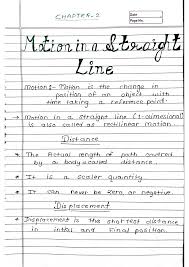 CHAPTER-2
Date
Page No.
Motion in a Straight
Line
Motion:- Motion is the change in
position of an object with
time taking a reference point.
→ Motion in a straight line (1-dimensional)
is also called as rectilinear motion.
Distance
→ The Actual length of path covered
by a body is called distance.
→ It is a scaler quantity.
→ It can never be zero or negative.
Displacement
→ Displacement is the shortest distance
in intial and final position.